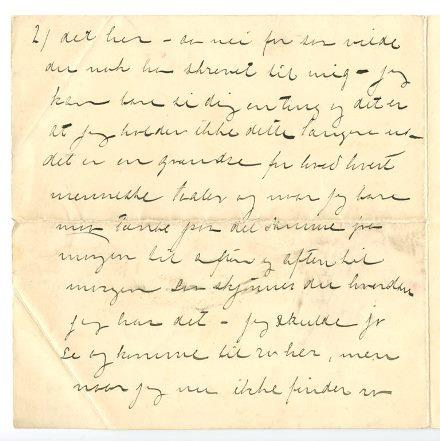 2) det her – aa nei for saa vilde
du nok ha skrevet til mig – jeg
kan bare si dig en ting og det er
at jeg holder ikke dette længere ut –
det er en grændse for hvad hvert
menneske taaler og naar jeg bare
maa tænke paa det samme fra
morgen til aften og aften til
morgen saa skjønner du hvordan
jeg har det – jeg skulde jo
se og komme til ro her, men
naar jeg nu ikke finder ro